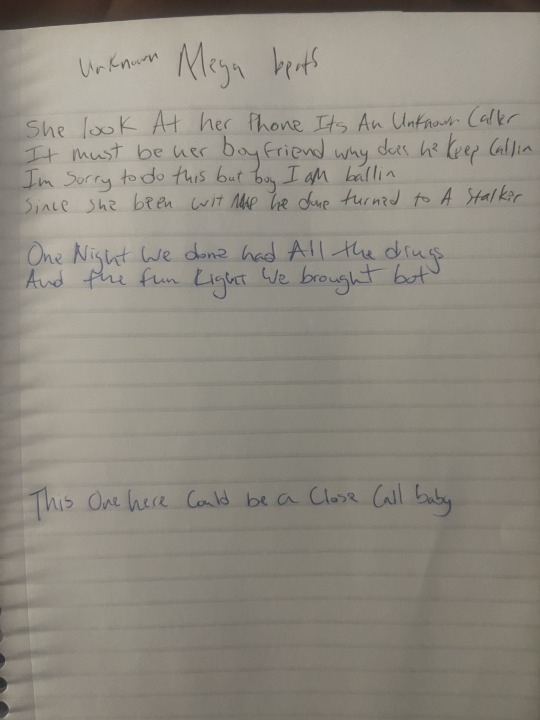 Unknown Mega beats
She look At her Phone Its An Unknown Caller
It must be her boyfriend why does he keep Callin
Im Sorry to do this but boy I am ballin
Since she been wit me he done turned to A Stalker
One Night We done had All the drugs
And the fun Right We brought bot
This One here Could be a Close Call baby